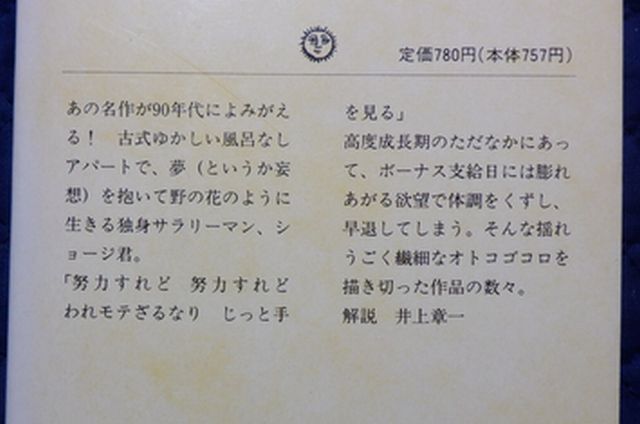 定価780円(本体757円)
あの名作が90年代によみがえ
る！　古式ゆかしい風呂なし
アパートで、夢（というか妄
想）を抱いて野の花のように
生きる独身サラリーマン、シ
ョージ君。
「努力すれど　努力すれど
われモテざるなり　じっと手
を見る」
高度成長期のただなかにあっ
て、ボーナス支給日には膨れ
あがる欲望で体調をくずし、
早退してしまう。そんな揺れ
うごく繊細なオトコゴコロを
描き切った作品の数々。
解説　井上章一